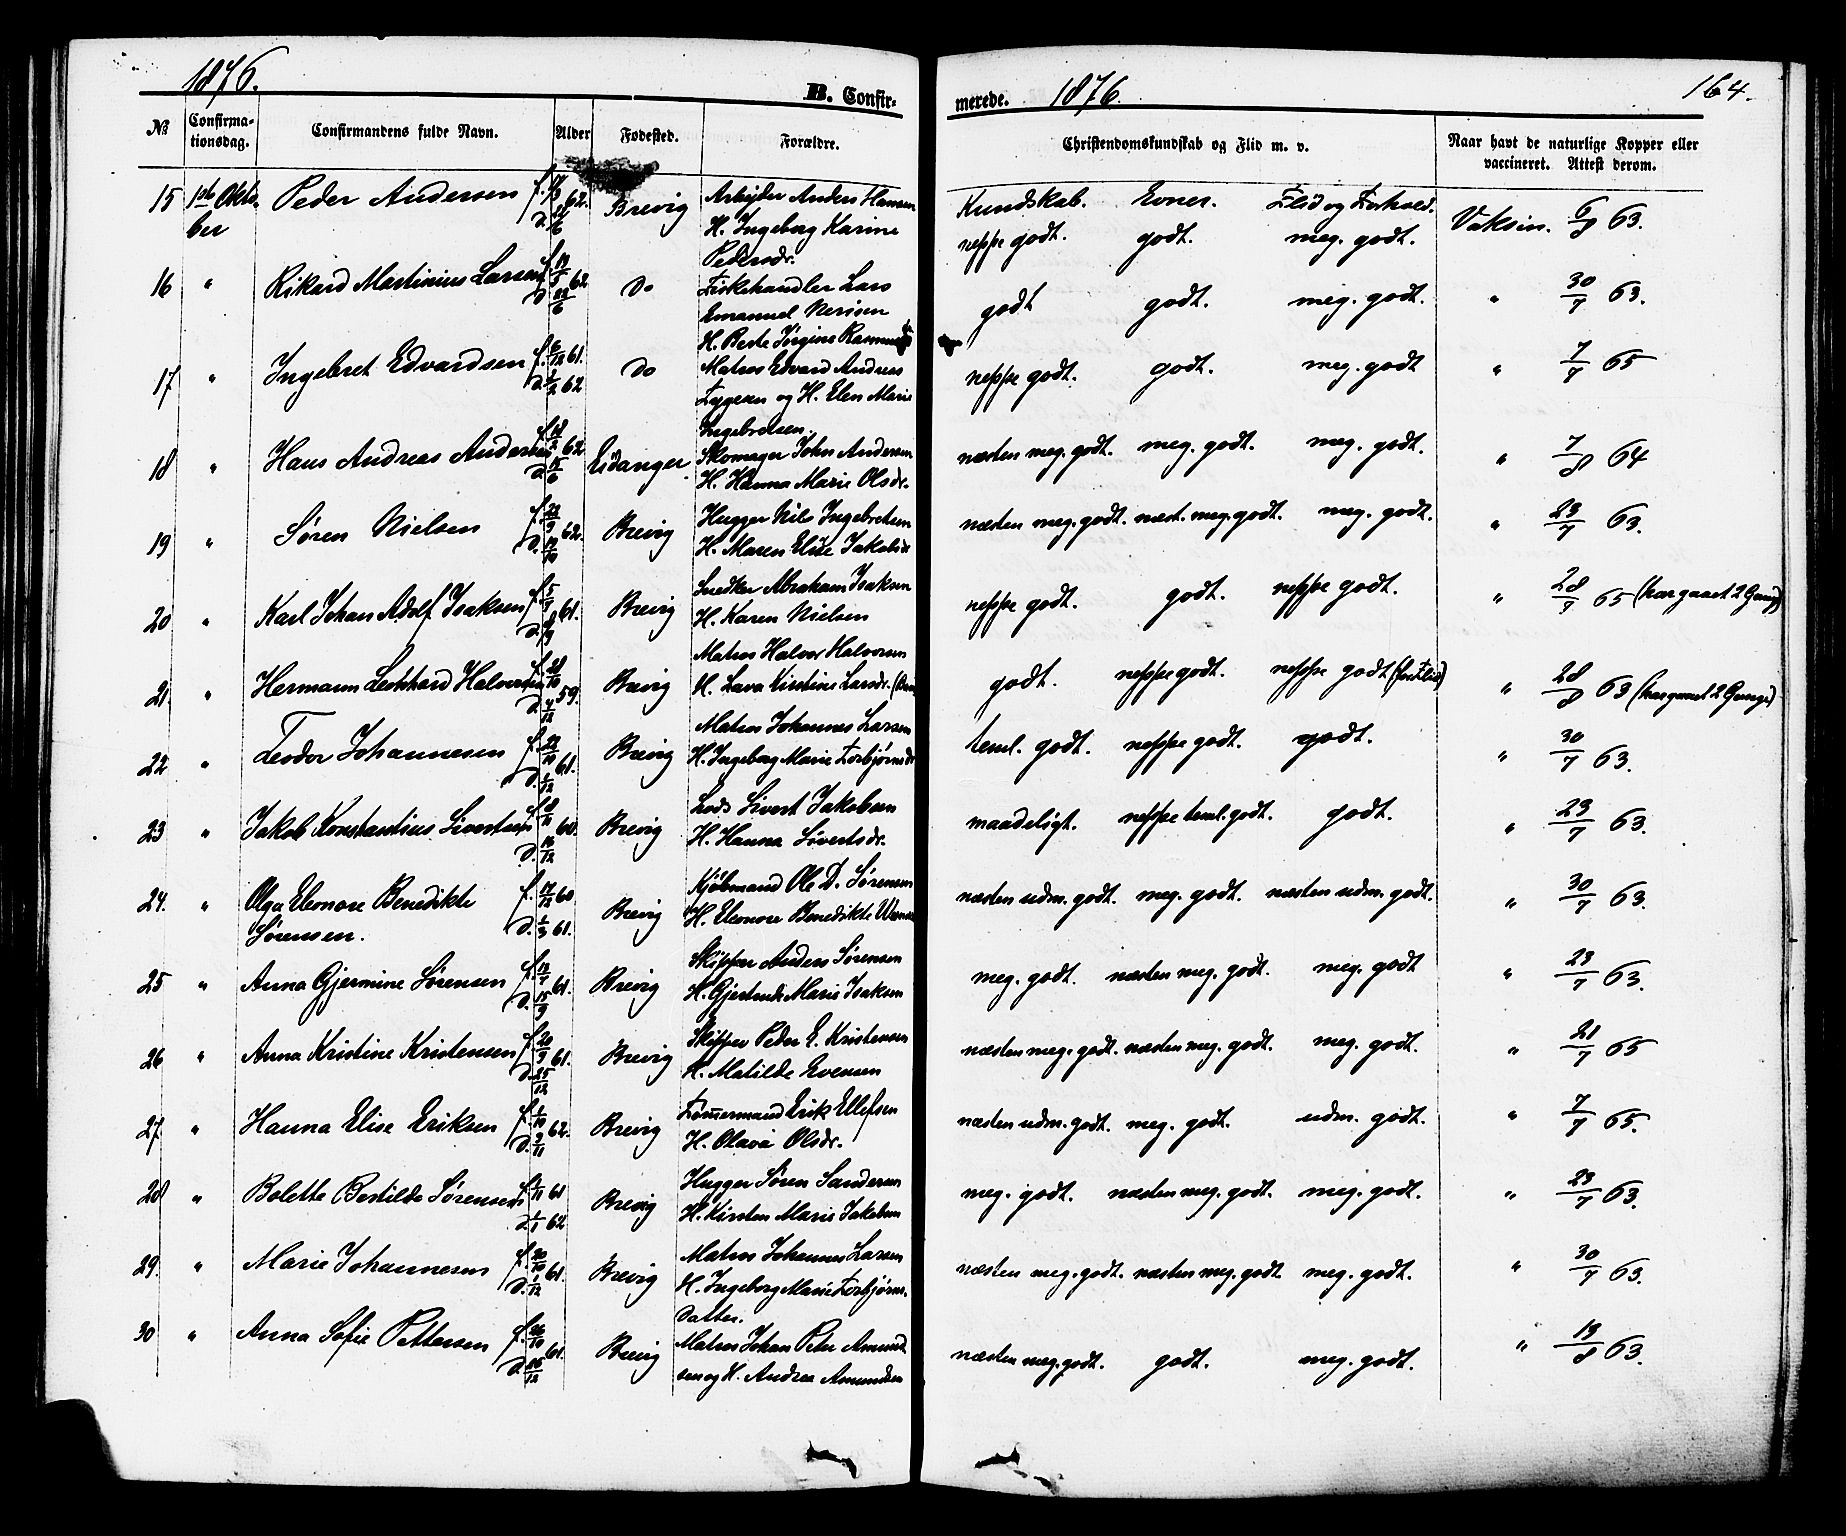 1876.
B. Confir-
merede. 1876.
164.
№
Confirma-
tionsdag.
Confirmandens fulde Navn.
Alder
Fødested.
Forældre.
Christendomskundskab og Flid m. v.
Naar havt de naturlige Kopper eller
vaccineret. Attest derom.
Kundskab. Evner. Flid og Forhold.
15 1ste Okto- Peder Andersen f. 62. Brevig Arbeider Anders Hansen
ber H. Ingeborg Karine
Pedersdr.
neppe godt. godt. meg. godt. Vaksin. 6/8 63.
16 " Rikard Martinius Larsen f. 62 Do Fiskehandler Lars
Emanuel
H. Berte Jørgine
godt godt. meg. godt. " 30/7 63.
17 " Ingebret Edvardsen f. 6/12 61. Do Matros Edvard Andreas
d. 2/2 62 og H. Elen Marie
Ingebretsen.
neppe godt. godt. meg. godt " 7/7 65
18 " Hans Andreas Andersen f. 62 Eidanger Skomager John Andersen
H. Hanna Marie Olsdr.
næsten meg. godt. meg. godt. meg. godt. " 7/8 64
19 " Søren Nielsen f. 62. Brevig Hugger Nils Ingebretsen
H. Maren Elise Jakobsdr
næsten meg. godt. næst. meg. godt. meg. godt. " 23/7 63.
20 " Karl Johan Adolf Isaksen f. 61. Brevig Snedker Abraham Isaksen
H. Karen Nielsen
neppe godt. godt. neppe godt. " 28/7 65 (har gaaet 2 Gang)
21. " Hermann Leonhard Halvorsen f. 59. Brevig Matros Halvor Halvorsen
d. 4/12 H. Lava Kirstine Larsdr.
godt. neppe godt. neppe godt (for Flid) " 28/8 63 (har gaaet 2 Gange)
22 " Teodor Johannesen f. 22/10 61. Brevig Matros Johannes Larsen
d. 1/12 H. Ingeborg Marie Torbjørnsdr
teml. godt. neppe godt. godt. " 30/7 63.
23 " Jakob Konstantius Sivertsen f. 60. Brevig Lods Sivert Jakobsen
d. 16/12 H. Hanna Sivertsdr.
maadeligt. neppe teml. godt. godt. " 23/7 63.
24. " Olga Elenore Benedikte f. 17/12 60 Brevig Kjøbmand Ole D. Sørensen
Sørensen. d. 1/3 61. H. Elenore Benedikte
næsten udm. godt. meg. godt. næsten udm. godt. " 30/7 63.
25 " Anna Gjermine Sørensen f. 61. Brevig Skipper Anders Sørensen
d. 15/9 H. Gjertrude Marie Isaksen
meg. godt. næsten meg. godt. meg. godt " 23/7 63.
26 " Anna Kristine Kristensen f. 20/9 61. Brevig Skipper Peder E. Kristensen
d. 25/12 H. Matilde Evensen
næsten meg. godt. næsten meg. godt. meg. godt. " 21/7 65
27. " Hanna Elise Eriksen f. 1/10 62. Brevig Tømmermand Erik Ellefsen
d. 9/11 H. Olava Olsdr.
næsten udm. godt. meg. godt. udm. godt. " 7/7 65.
28 " Bolette Bertilde Sørensen f. 1/11 61 Brevig Hugger Søren Sandersen
d. 1/1 62 H. Kirsten Marie Jakobsen
meg. godt. næsten meg. godt. meg. godt. " 23/7 63.
29. " Marie Johannesen f. 20/10 61. Brevig Matros Johannes Larsen
d. 1/12 H. Ingeborg Marie Torbjørns-
datter.
næsten meg. godt. næsten meg. godt. meg. godt. " 30/7 63.
30 " Anna Sofie Pettersen f. 26/10 61. Brevig Matros Johan Peter Amund-
d. 26/12 sen og H. Andrea Amundsen
næsten meg. godt. godt. meg. godt. " 13/8 63.